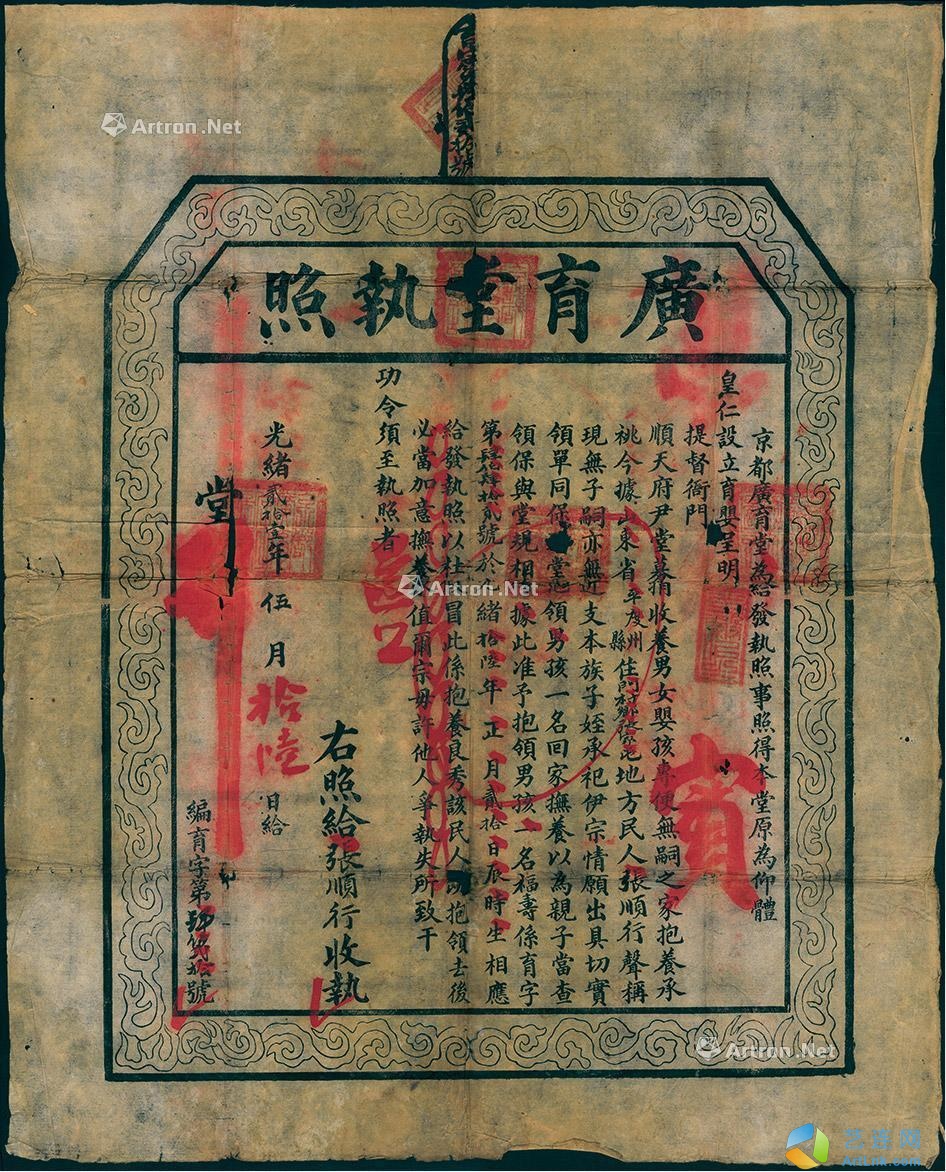 廣育堂執照
京都廣育堂為給發執照事照得本堂原為仰體
皇仁設立育嬰呈明
提督衙門
順天府尹堂募捐收養男女嬰孩專便無嗣之家抱養承
祧今據山東省平度州縣住地方民人張順行聲稱
現無子嗣亦無近支本族子姪承祀伊宗情願出具切實
領單同保堂領男孩一名回家撫養以為親子當查
領保與堂規相據此准予抱領男孩一名福壽係育字
第拾貳號於緒拾陸年正月貳拾日辰時生相應
給發執照以杜冒此係抱養良秀該民人抱領去後
必當加意撫養值爾宗毋許他人爭執失所致干
功令須至執照者
右照給張順行收執
光緒貳拾壹年伍月拾陸日給
堂
編育字第號
實
Artron.Net
Artron.Net
Artron.Net